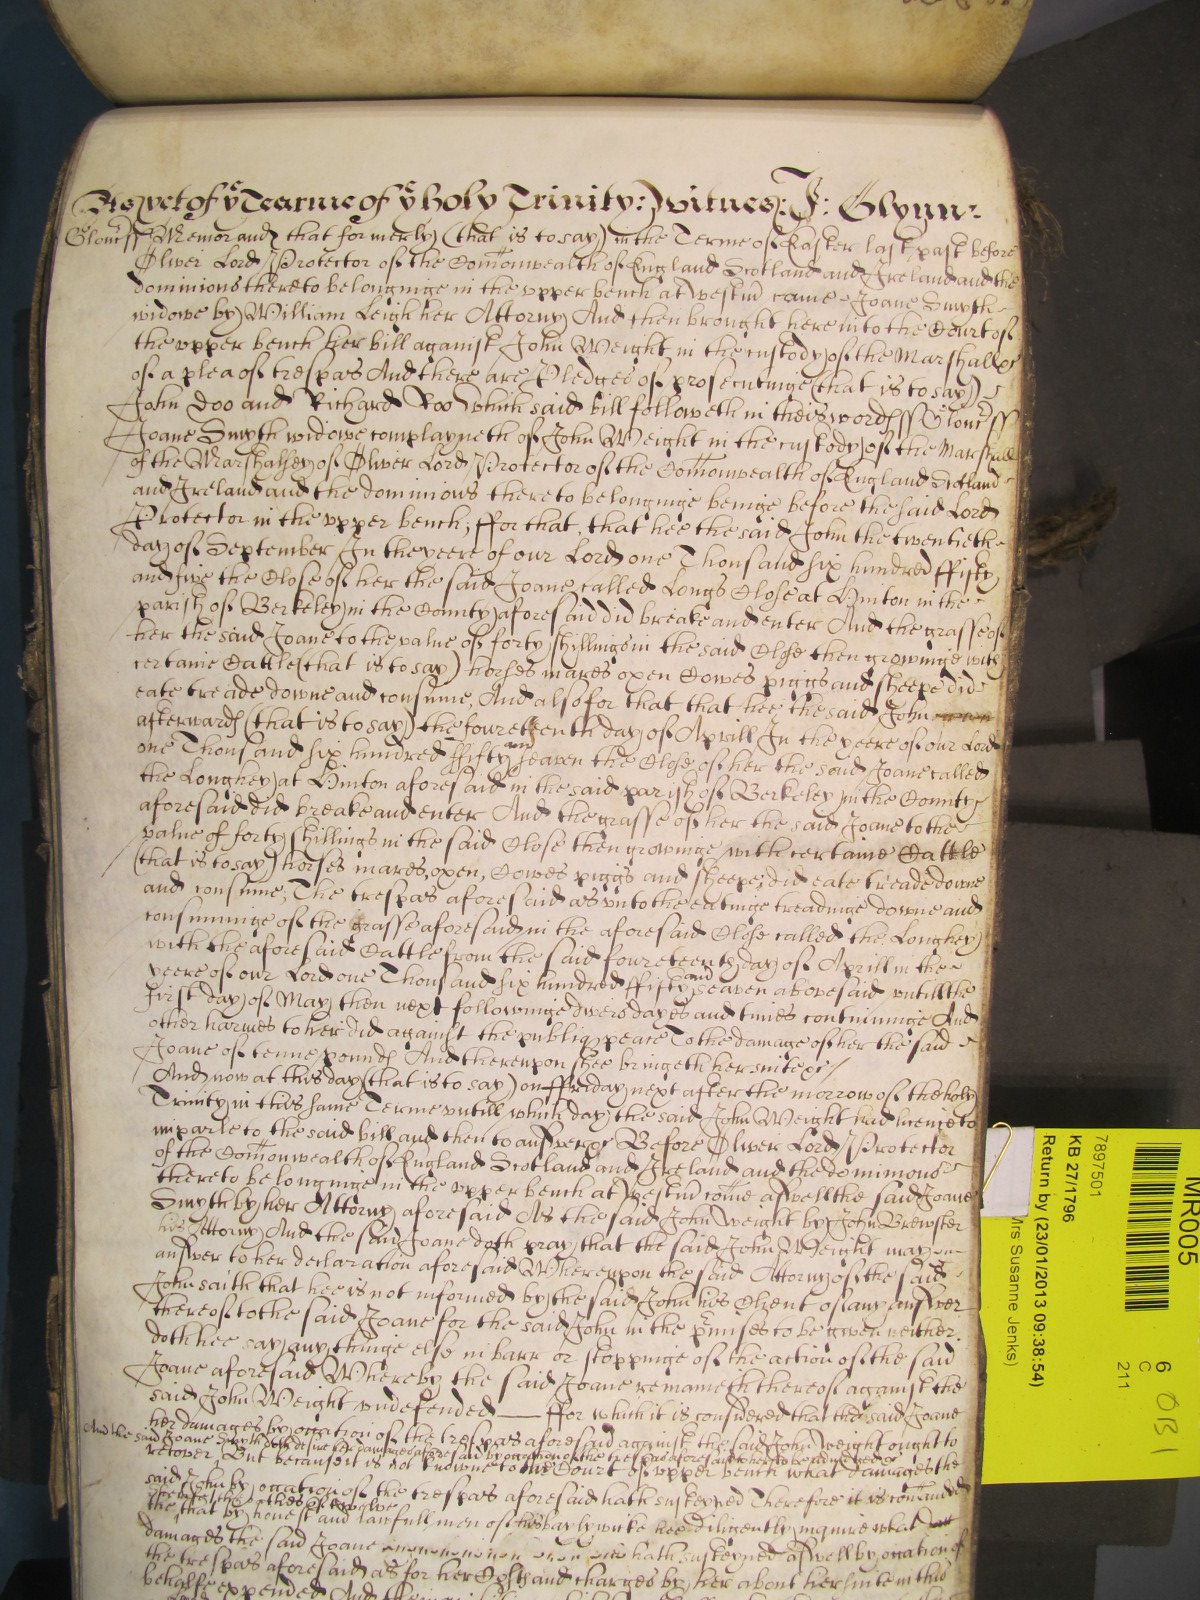 As yet of ye Tearme of ye holy Trinity: Witnes: J: Glynn:
Glouc ss Memorand that formerly (that is to say) in the Terme of Easter last past before
Oliver Lord Protector of the Comonwealth of England Scotland and Ireland and the
dominions thereto belonginge in the upper bench at Westm came Joane Smyth
widowe by William Leigh her Attorny And then brought here into the Court of
the upper bench her bill against John Weight in the custody of the Marshall &c
of a plea of trespas And there are Pledges of prosecutinge (that is to say)
John Doo and Richard Roo Which said bill followeth in theis words ss Glouc ss
Joane Smyth widowe complayneth of John Weight in the custody of the Marshall
of the Marshalsey of Oliver Lord Protector of the Comonwealth of England Scotland
and Ireland and the dominions thereto belonginge beinge before the said Lord
Protector in the upper bench, ffor that, that hee the said John the twentieth
day of September In the yeere of our Lord one Thousand six hundred ffifty
and five the Close of her the said Joane called Longs Close at Hinton in the
parish of Berkeley in the County aforesaid did breake and enter And the grasse of
her the said Joane to the value of forty shillings in the said Close then growinge with
certaine Cattle (that is to say) horses mares oxen Cowes piggs and sheepe did
eate treade downe and consume, And also for that that hee the said John
afterwards (that is to say) the fourteenth day of Aprill In the yeere of our Lord
one Thousand six hundred ffifty and seaven the Close of her the said Joane called
the Longhey at Hinton aforesaid in the said parish of Berkeley in the County
aforesaid did breake and enter And the grasse of her the said Joane to the
value of forty shillings in the said Close then growinge with certaine Cattle
(that is to say) horses mares, oxen, Cowes piggs and sheepe; did eate treade downe
and consume, The trespas aforesaid as unto the eatinge treadinge downe and
consuminge of the grasse aforesaid in the aforesaid Close called the Longhey
with the aforesaid Cattle from the said fourteenth day of Aprill in the
yeere of our Lord one Thousand six hundred ffifty and seaven abovesaid untill the
first day of May then next followinge divers dayes and times continuinge And
other harmes to her did against the publiq peace To the damage of her the said
Joane of tenne pounds And thereupon shee bringeth her suite &c /
And now at this day (that is to say) on ffriday next after the morrow of the holy
Trinity in this same Terme untill which day the said John Weight had licence to
imparle to the said bill and then to answer &c Before Oliver Lord Protector
of the Comonwealth of England Scotland and Ireland and the dominions
thereto belonginge in the upper bench at Westm come aswell the said Joane
Smyth by her Attorny aforesaid As the said John Weight by John Brewster
his Attorny And the said Joane doth pray that the said John Weight may
answer to her declaration aforesaid Whereupon the said Attorny of the said
John saith that hee is not informed by the said John his Client of any answer
thereof to the said Joane for the said John in the pmises to be given neither
doth hee say any thinge else in barr or stoppinge of the action of the said
Joane aforesaid Whereby the said Joane remaineth thereof against the
said John Weight undefended ffor which it is considered that the said Joane
her damages by occation of the trespas aforesaid against the said John Weight ought to
And the said Joane Smyth doth desire her damages aforesaid by occation of the trespas aforesaid to her to be adiudged &c
recover, But because it is not knowne to the Court of upper bench what damages the
said John by occation of the trespas aforesaid hath susteyned Therefore it is comanded
the that by honest and lawfull men of his baylywike hee diligently inquire what
damages the said Joane hath susteyned aswell by occation of
the trespas aforesaid as for her Costs and charges by her about her suite in this
behalfe expended And
MR005
7897501
KB 27/1796
Return by (23/01/2013 09:38:54)
Mrs Susanne Jenks)
6
C
211